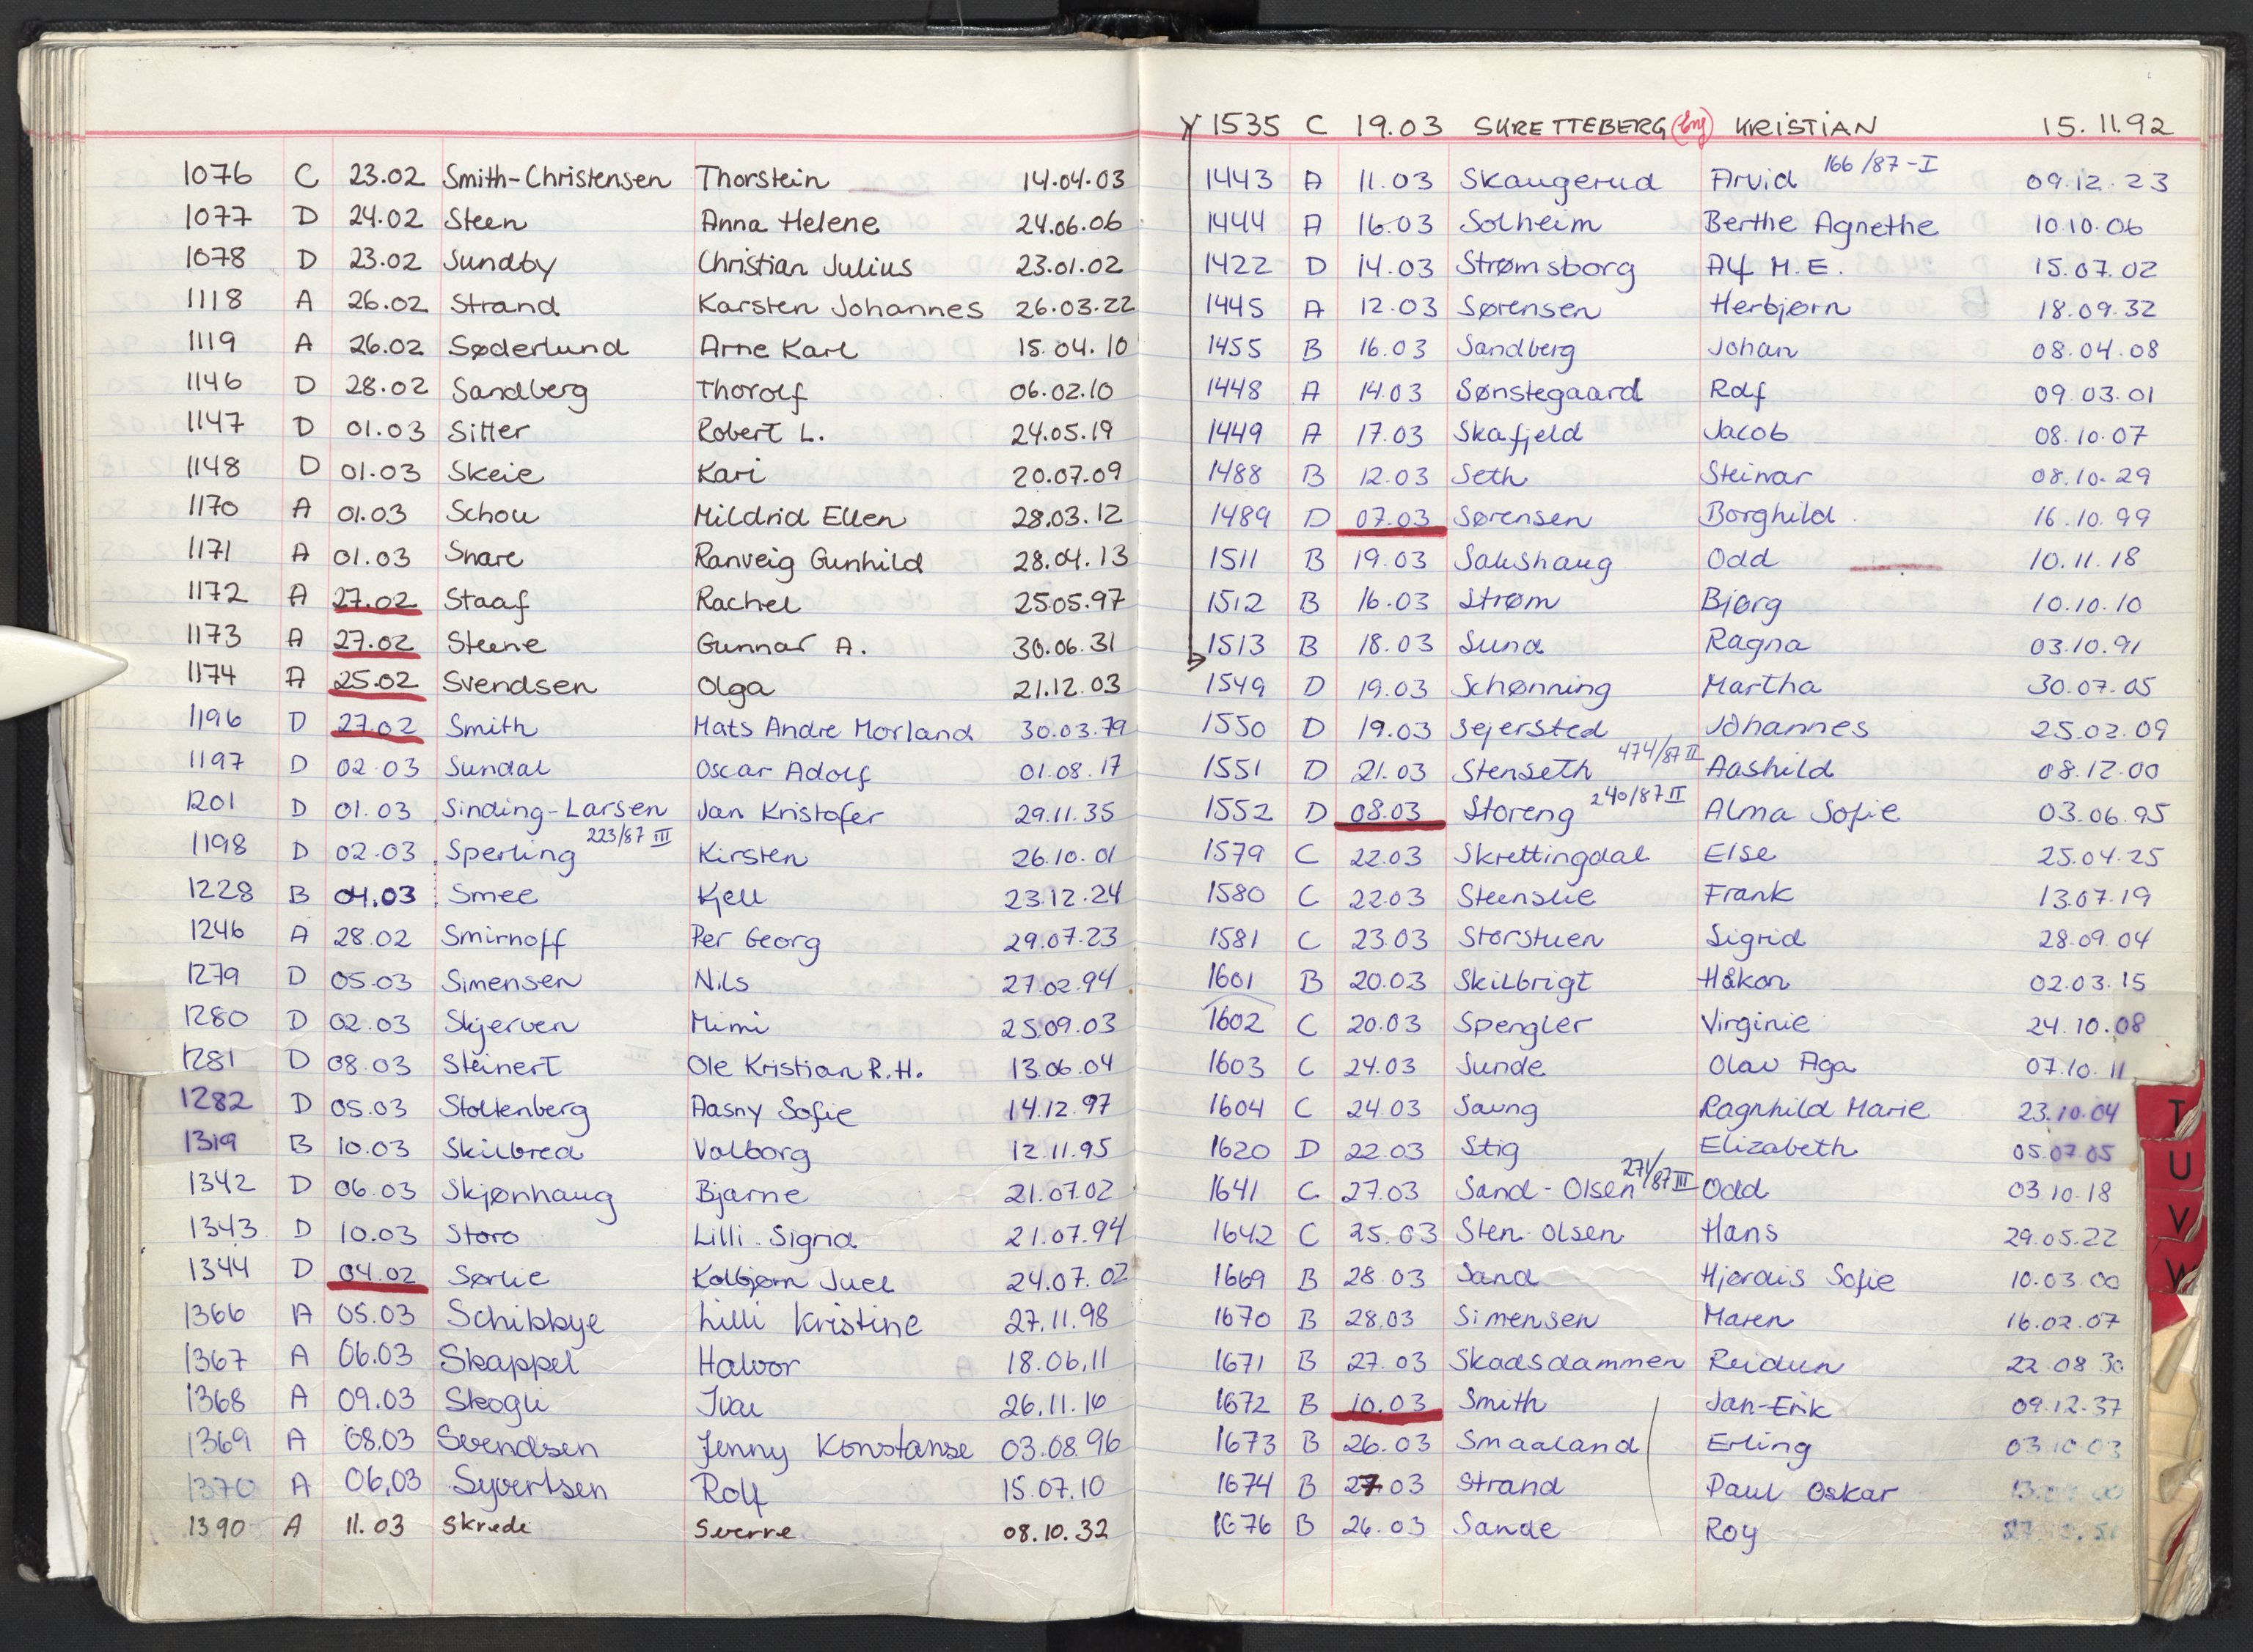 1076 C 23.02 Smith-Christensen Thorstein 14.04.03
1077 D 24.02 Steen Anna Helene 24.06.06
1078 D 23.02 Sundby Christian Julius 23.01.02
1118 A 26.02 Strand Karsten Johannes 26.03.22
1119 A 26.02 Søderlund Arne Karl 15.04.10
1146 D 28.02 Sandberg Thorolf 06.02.10
1147 D 01.03 Sitter Robert L. 24.05.19
1148 D 01.03 Skeie Kari 20.07.09
1170 A 01.03 Schou Mildrid Ellen 28.03.12
1171 A 01.03 Snare Ranveig Gunhild 28.04.13
1172 A 27.02 Staaf Rachel 25.05.97
1173 A 27.02 Steene Gunnar A. 30.06.31
1174 A 25.02 Svendsen Olga 21.12.03
1196 D 27.02 Smith Mats Andre Morland 30.03.79
1197 D 02.03 Sundal Oscar Adolf 01.08.17
1201 D 01.03 Sinding-Larsen Jan Kristofer 29.11.35
1198 D 02.03 Sperling 223/87 III Kirsten 26.10.01
1228 B 04.03 Smee Kjell 23.12.24
1246 A 28.02 Smirnoff Per Georg 29.07.23
1279 D 05.03 Simensen Nils 27.02.94
1280 D 02.03 Skjerven Mimi 25.09.03
1281 D 08.03 Steinert Ole Kristian R.H. 13.06.04
1282 D 05.03 Stoltenberg Aasny Sofie 14.12.97
1319 B 10.03 Skilbred Valborg 12.11.95
1342 D 06.03 Skjønhaug Bjarne 21.07.02
1343 D 10.03 Storo Lilli Sigrid 21.07.94
1344 D 04.02 Sørlie Kolbjørn Juel 24.07.02
1366 A 05.03 Schibbye Lilli Kristine 27.11.98
1367 A 06.03 Skappel Halvor 18.06.11
1368 A 09.03 Skogli Ivar 26.11.10
1369 A 08.03 Svendsen Jenny Konstanse 03.08.96
1370 A 06.03 Syvertsen Rolf 15.07.10
1390 A 11.03 Skrede Sverre 08.10.32
1535 C 19.03 SKRETTEBERG KRISTIAN 15.11.92
1443 A 11.03 Skaugerud Arvid 166/87-I 09.12.23
1444 A 16.03 Solheim Berthe Agnethe 10.10.06
1422 D 14.03 Strømsborg Alf M.E. 15.07.02
1445 A 12.03 Sørensen Herbjørn 18.09.32
1455 B 16.03 Sandberg Johan 08.04.08
1448 A 14.03 Sønstegaard Rolf 09.03.01
1449 A 17.03 Skafjeld Jacob 08.10.07
1488 B 12.03 Seth Steinar 08.10.29
1489 D 07.03 Sørensen Borghild 16.10.99
1511 B 19.03 Sakshaug Odd 10.11.18
1512 B 16.03 Strøm Bjørg 10.10.10
1513 B 18.03 Sund Ragna 03.10.91
1549 D 19.03 Schønning Martha 30.07.05
1550 D 19.03 Sejersted Johannes 25.02.09
1551 D 21.03 Stenseth 474/87 II Aashild 08.12.00
1552 D 08.03 Storeng 240/87 II Alma Sofie 03.06.95
1579 C 22.03 Skrettingdal Else 25.04.25
1580 C 22.03 Steenslie Frank 13.07.19
1581 C 23.03 Storstuen Sigrid 28.09.04
1601 B 20.03 Skilbrigt Håkon 02.03.15
1602 C 20.03 Spengler Virginie 24.10.08
1603 C 24.03 Sunde Olav Aga 07.10.11
1604 C 24.03 Saung Ragnhild Marie 23.10.04
1620 D 22.03 Stig Elizabeth 05.07.05
1641 C 27.03 Sand-Olsen 271/87 III Odd 03.10.18
1642 C 25.03 Sten Olsen Hans 29.05.22
1669 B 28.03 Sand Hjørdis Sofie 10.03.00
1670 B 28.03 Simensen Maren 16.02.07
1671 B 27.03 Skadsdammen Reidun 22.08.30
1672 B 10.03 Smith Jan-Erik 09.12.37
1673 B 26.03 Smaaland Erling 03.10.03
1674 B 27.03 Strand Paul Oskar
1676 B 26.03 Sande Roy
T
U
V
W